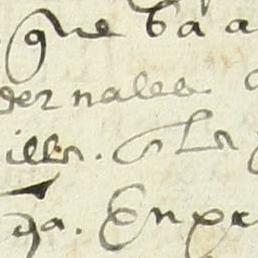 que ba a
dernales
illa. a la
ga. En pre